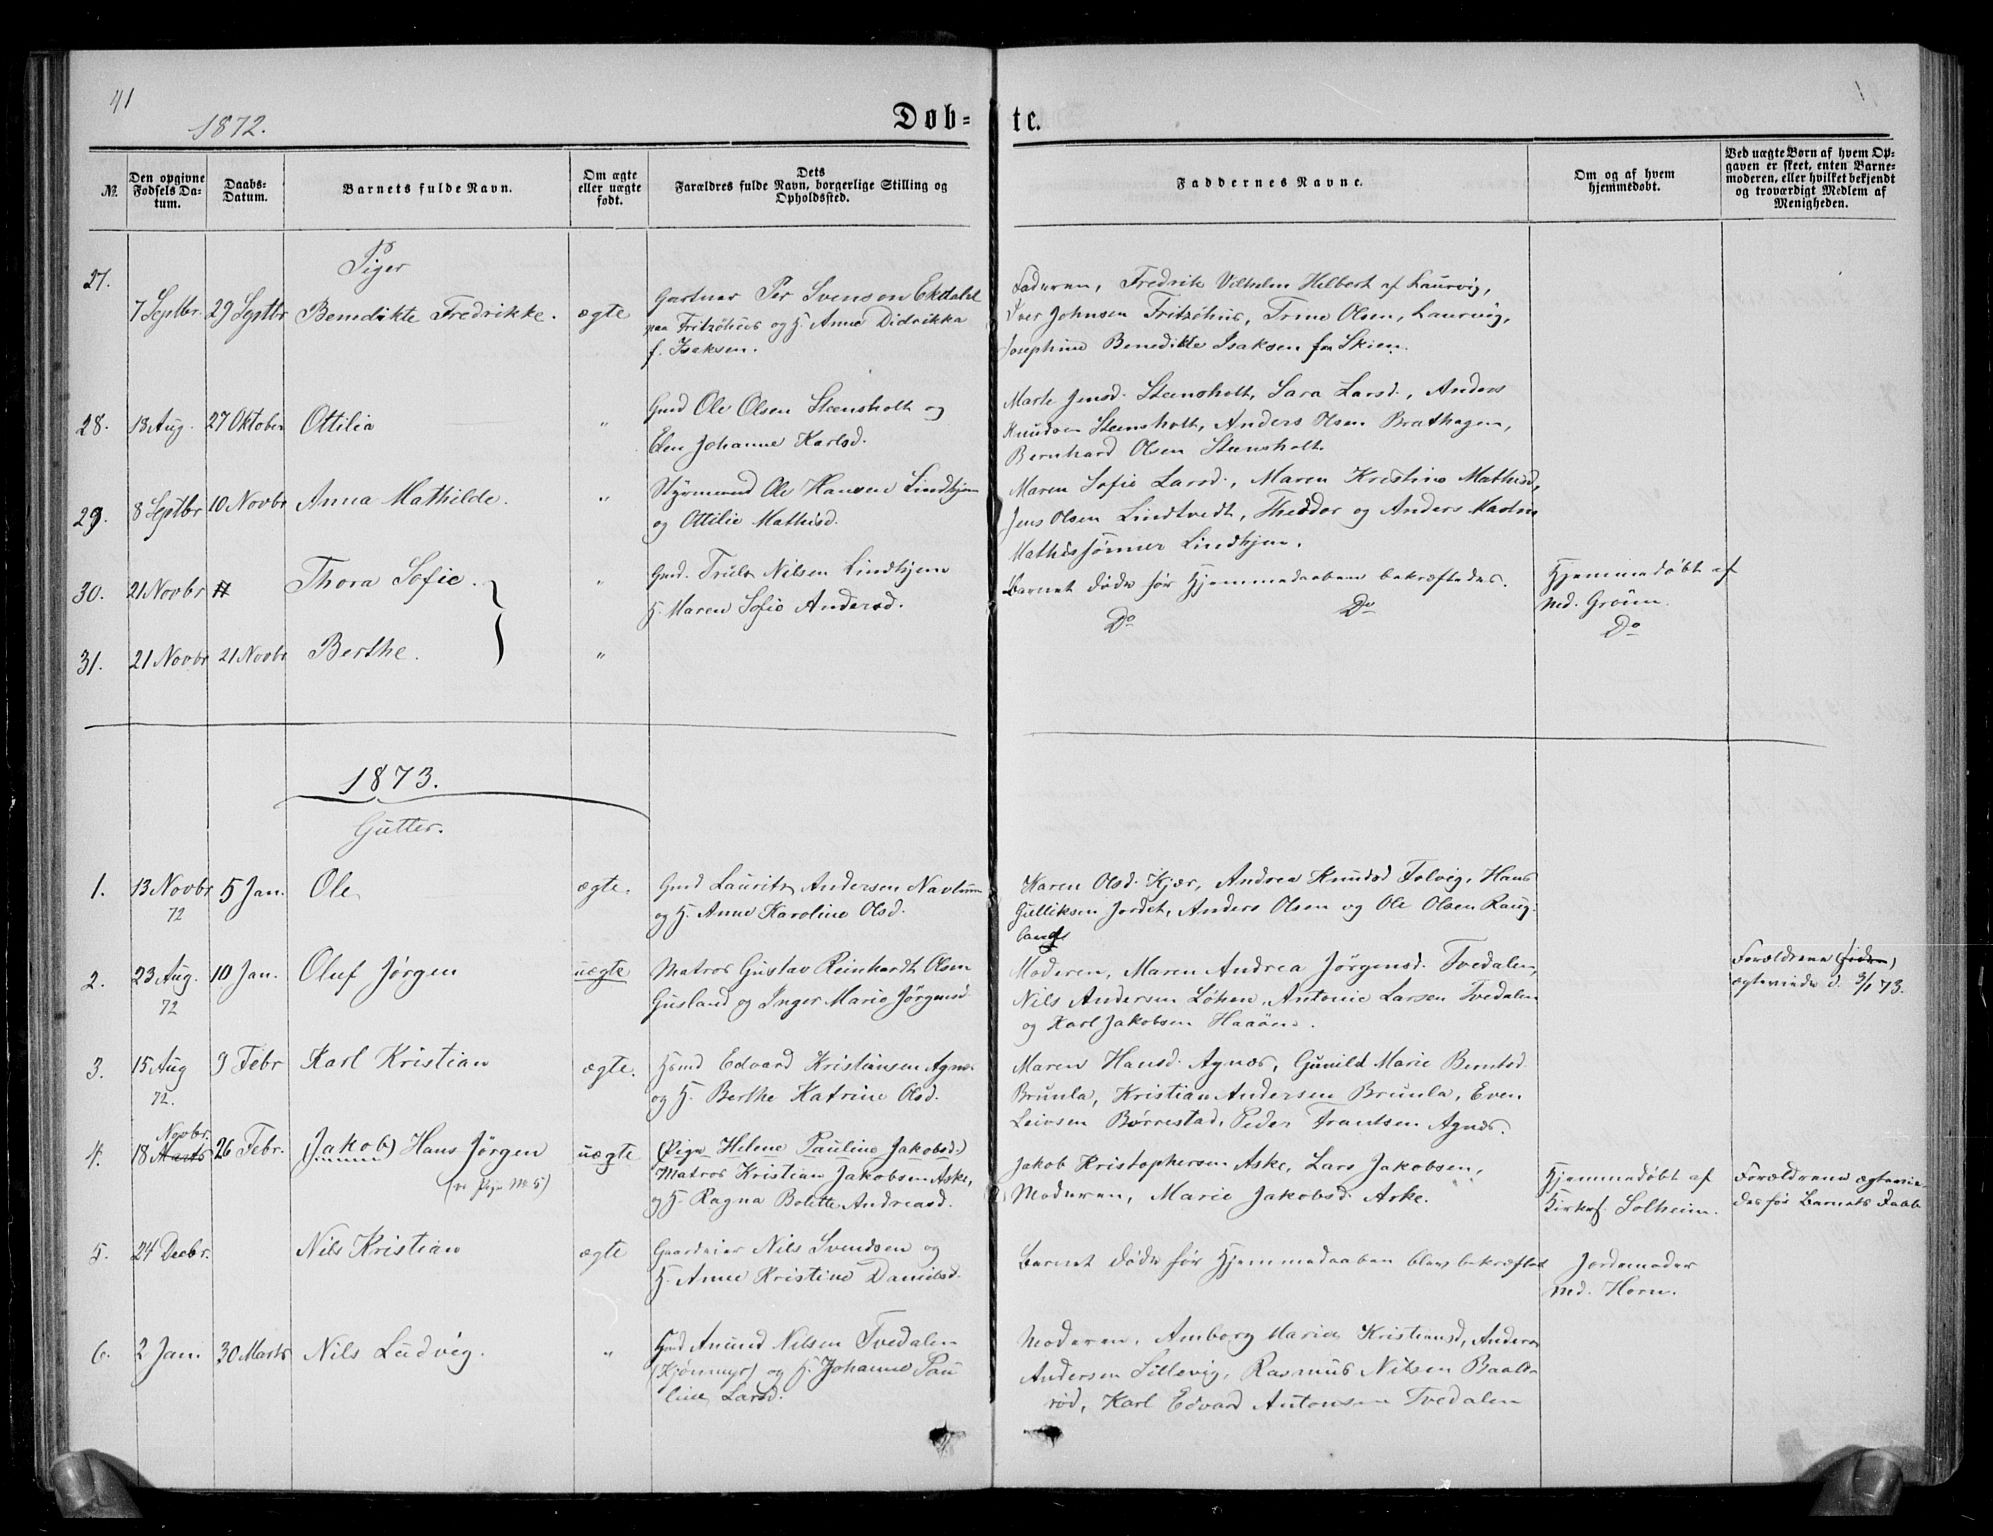 41
1872.
Døb-
te.
№.
Den opgivne Fødsels Da-tum.
Daabs-Datum.
Barnets fulde Navn.
Om ægte eller uægte født.
Dets Forældres fulde Navn, borgerlige Stilling og Opholdssted.
Faddernes Navne.
Om og af hvem hjemmedøbt.
Ved uægte Børn af hvem Op-gaven er skeet, enten Barne-moderen, eller hvilket bekjendt og troværdigt Medlem af Menigheden.
Piger
27. 7 Septbr. 29 Septbr Benedikte Fredrikke. ægte
Gartner Per Svenson Ekdahl
paa Fritzöhus og H. Anne Didrikka
f. Isaksen.
Faderen, Fredrik Vilhelm Helbert af Laurvig,
Iver Johnsen Fritzöhus, Trine Olsen, Laurvig,
Josephine Benedikte Isaksen fra Skien.
28. 13 Aug. 27 Oktober Ottilia "
Gmd Ole Olsen Steensholt og
Elen Johanne Karlsd.
Marte Jensd. Steensholt, Sara Larsd., Anders
Knudsen Steensholt, Anders Olsen Brathagen,
Bernhard Olsen Steensholt.
29. 8 Septbr 10 Novbr Anna Mathilde. "
Styrmand Ole Hansen Lindhjem
og Ottilie Mathisd.
Maren Sofie Larsd., Maren Kristine Mathisd,
Jens Olsen Lindtvedt, Theodor og Anders Martin
Mathissønner Lindhjem.
30. 21 Novbr Thora Sofie. "
Gmd. Truls Nilsen Lindhjem
H. Maren Sofie Andersd.
Barnet døde før Hjemmedaaben bekræftedes.
Hjemmedøbt af
Md. Gröner.
Do Do Do
31. 21 Novbr 21 Novbr Berthe. "
1873.
Gutter.
1. 13 Novbr 72 5 Jan. Ole ægte.
Gmd Laurits Andersen Navlum
og H. Anne Karoline Olsd.
Karen Olsd. Kjær, Andrea Knudsd Tolvig, Hans
Gulliksen Jordet, Anders Olsen og Ole Olsen Raug-
land
2. 23 Aug. 72 10 Jan. Oluf Jørgen uægte
Matros Gustav Reinhardt Olsen
Gusland og Inger Marie Jørgensd.
Moderen, Maren Andrea Jørgensd. Tvedalen,
Nils Andersen Løken, Antonie Larsen Tvedalen
og Karl Jakobsen Haaön.
Forældrene (siden)
ægteviede d. 3/1 73.
3. 15 Aug 72. 9 Febr Karl Kristian ægte.
Hsmd Edvard Kristiansen Agnæs
og H. Berthe Katrine Olsd.
Maren Hansd. Agnæs, Gunild Marie Berntsd.
Brunla, Kristian Andersen Brunla, Even
Leivsen Børrestad, Peder Frantsen Agnæs.
4. 18 Marts Novbr. 26 Febr. (Jakob) Hans Jørgen uægte
(Pige Helene Pauline Jakobsd.)
Matros Kristian Jakobsen Aske,
og H. Ragna Bolette Andreasd.
Jakob Kristophersen Aske, Lars Jakobsen,
Moderen, Marie Jakobsd. Aske.
Hjemmedøbt af
Kirkes. Solheim.
Forældrene ægtevie-
des før Barnets Daab
5. 24 Decbr. Nils Kristian ægte
Gaardeier Nils Svendsen og
H. Anne Kristine Danielsd.
Barnet døde før Hjemmedaaben blev bekræftet
Jordemoder
Md. Horn.
6. 2 Jan. 30 Marts Nils Ludvig. "
Hsmd Amund Nilsen Tvedalen
(Kjønmyr) og H. Johanne Pau
line Larsd.
Moderen, Amborg Marie Kristiansd, Anders
Andersen Lillevig, Rasmus Nilsen Baalsrød, Karl Edvard Antonsen Tvedalen